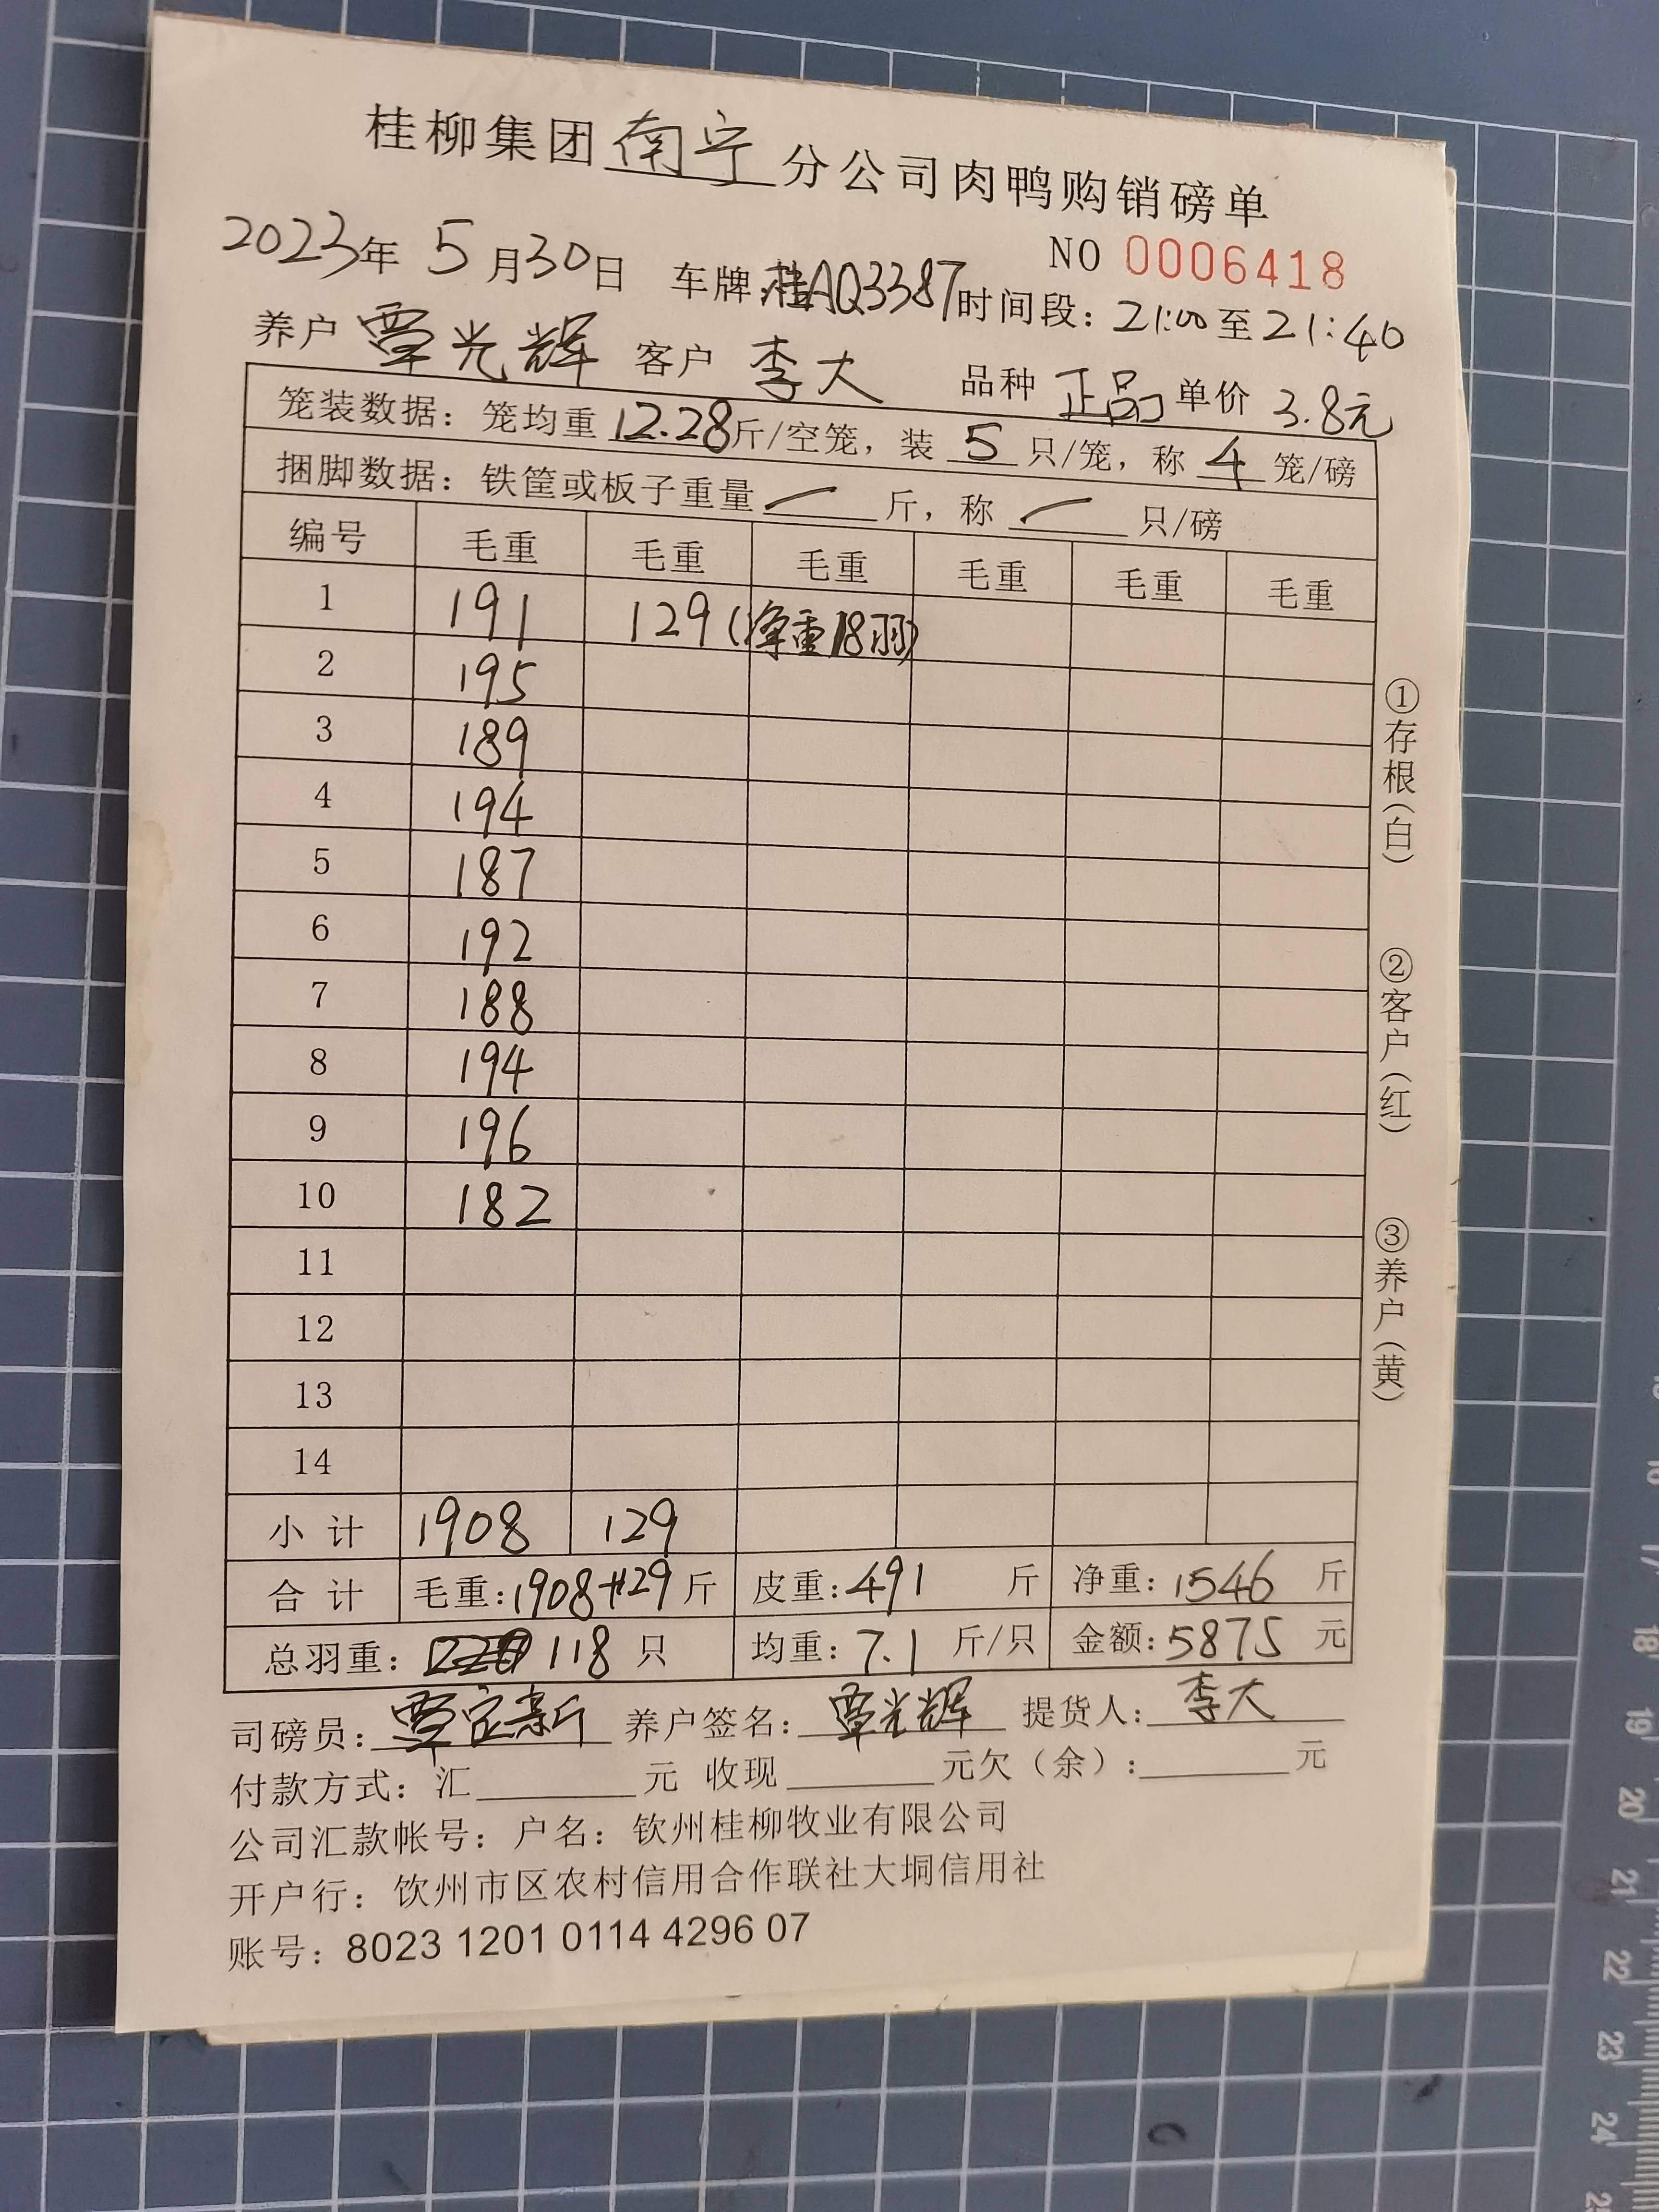 桂柳集团南宁分公司肉鸭购销磅单
NO 0006418
2023年 5月30日 车牌:桂AQ3387 时间段: 21:00至21:40
养户 覃光辉 客户 李大 品种 正品 单价 3.8元
笼装数据: 笼均重 12.28斤/空笼, 装 5 只/笼, 称 4 笼/磅
捆脚数据: 铁筐或板子重量 一 斤, 称 一 只/磅
编号 毛重 毛重 毛重 毛重 毛重 毛重
1 191 129 (净重18羽)
2 195
3 189
4 194
5 187
6 192
7 188
8 194
9 196
10 182
11
12
13
14
小计 1908 129
合计 毛重:1908+129斤 皮重:491 斤 净重:1546 斤
总羽重: 118 只 均重:7.1 斤/只 金额:5875 元
司磅员:覃定新 养户签名:覃光辉 提货人:李大
付款方式: 汇 元 收现 元欠(余): 元
公司汇款帐号: 户名: 钦州桂柳牧业有限公司
开户行: 钦州市区农村信用合作联社大垌信用社
账号: 8023 1201 0114 4296 07
①存根(白)
②客户(红)
③养户(黄)
16
17
18
19
20
21
22
23
24